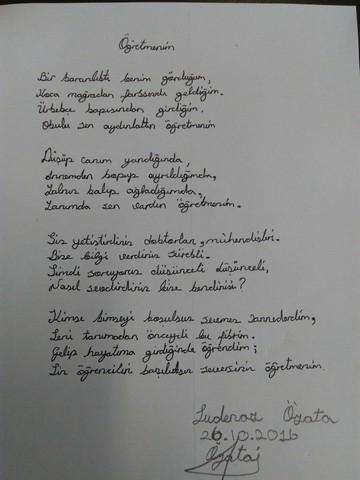 Öğretmenim
Bir karanlıktı benim gördüğüm,
Koca mağradan farksızdı geldiğim.
Ürkekçe kapısından girdiğim.
Okulu sen aydınlattın öğretmenim
Düşüp canım yandığında,
Annemden kopup ayrıldığımda,
Yalnız kalıp ağladığımda,
Yanımda sen vardın öğretmenim.
Siz yetiştirdiniz doktorları, mühendisleri.
Bize bilgi verdiniz sürekli.
Şimdi soruyoruz düşünceli düşünceli,
Nasıl sevdirdiniz bize kendinizi?
Kimse kimseyi koşulsuz sevmez zannederdim,
Seni tanımadan önceydi bu fikrim.
Gelip hayatıma girdiğinde öğrendim;
Siz öğrencileri koşulsuz seversiniz öğretmenim.
Sudenaz Özata
26.10.2016